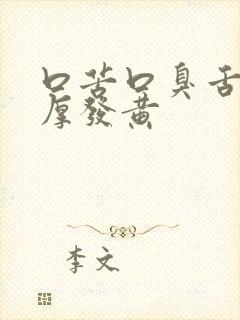 口苦口臭舌
厚發黃
李文